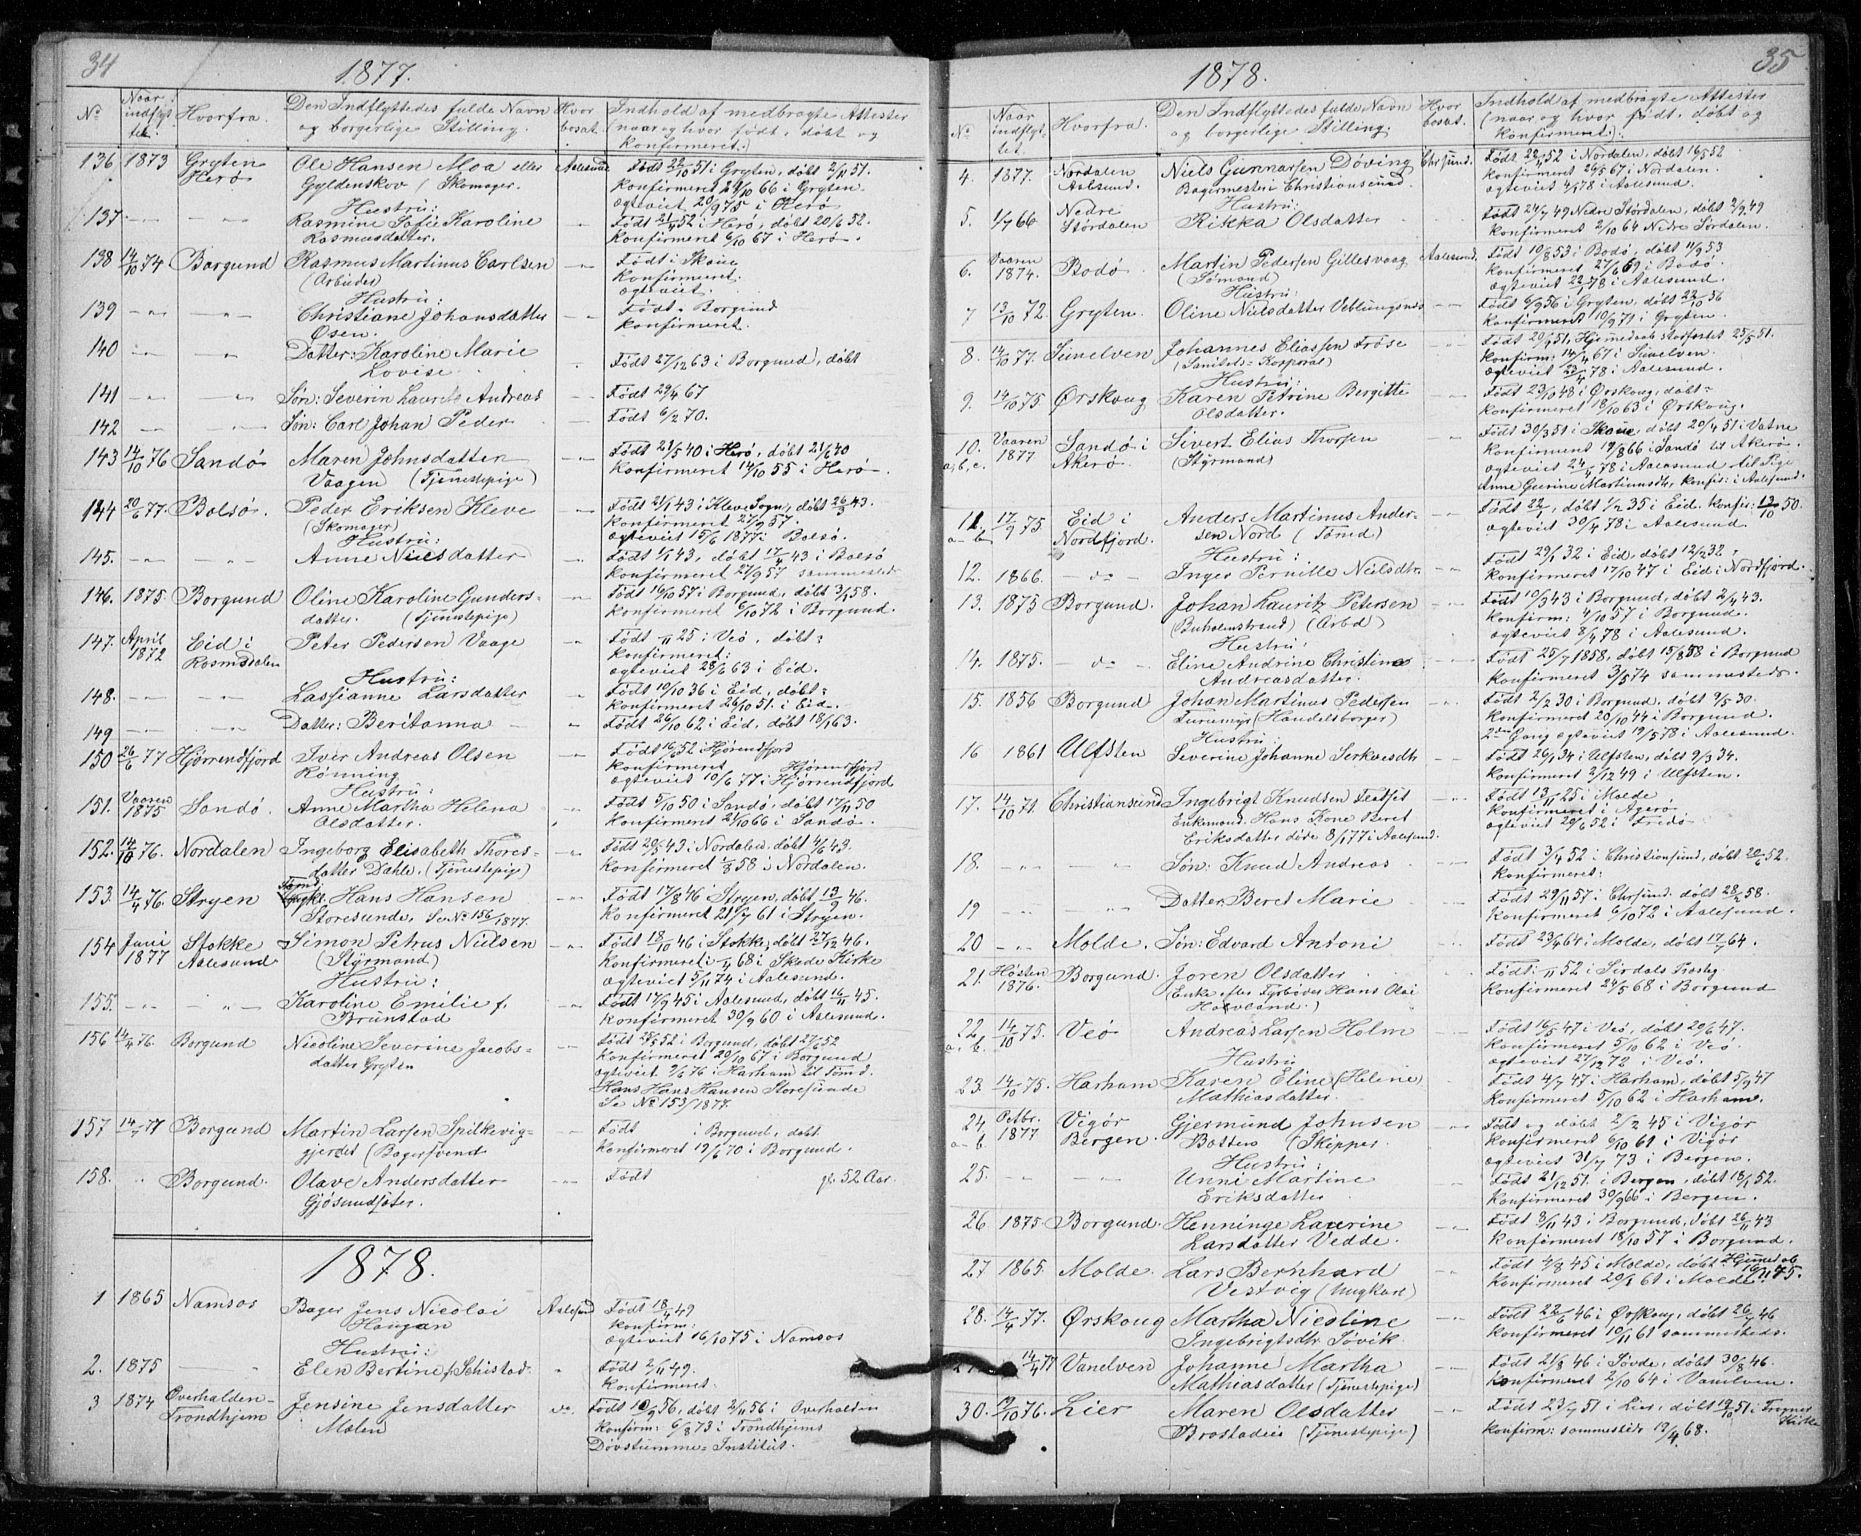 34
1877.
No
Naar indflyttet.
Hvorfra.
Den Indflyttedes fulde Navn og borgerlige Stilling.
Hvor bosat.
Indhold af medbragte Attester (naar og hvor født, døbt og konfirmeret.)
136 1873 Gryten Herø Ole Hansen Moa eller Aalesund Født 22/10 51 i Gryten, døbt 2/11 51.
Gyldenskov (Skomager. Konfirmeret 66 i Gryten.
Hustru: ægteviet 20/9 75 i Herø
137 Rasmine Sofie Karoline Født 21/4 52 i Herø, døbt 20/6 52.
Rasmusdatter. Konfirmeret 6/10 67 i Herø.
138 14/10 74 Borgund Rasmus Martinus Carlsen Født i Skoue
(Arbeider) konfirmeret.
Hustru: ægteviet.
139 Christiane Johansdatter Født Borgund
Øsen. konfirmeret.
140 Datter: Karoline Marie
Lovise Født 27/12 63 i Borgund, døbt
141 Søn: Severin Laurits Andreas Født 29/4 67
142 Søn: Carl Johan Peder Født 6/2 70.
143 14/10 76 Sandø Maren Johnsdatter Født 21/5 40 i Herø, døbt 21/6 40
Vaagen (Tjenestepige) Konfirmeret 14/10 55 i Herø.
144 20/6 77. Bolsø. Peder Eriksen Kleve Født 21/1 43 i Kleve Sogn, døbt 26/3 43.
(Skomager) Konfirmeret 27/9 57.
Hustru: ægteviet 15/6 1877 i Bolsø.
145. Anne Nielsdatter Født 1/1 43, døbt 17/4 43 i Bolsø
konfirmeret 27/9 57 sammesteds
146. 1875. Borgund Oline Karoline Gunders- Født 19/10 57 i Borgund, døbt 3/1 58.
datter. (Tjenestepige) Konfirmeret 6/10 72 i Borgund.
147. April 1872 Eid i Romsdalen Peter Pedersen Vaage Født -/11 25 i Veø, døbt:
konfirmeret:
Hustru: ægteviet 28/6 63 i Eid.
148. Lassianne Larsdatter Født 10/10 36 i Eid, døbt:
Konfirmeret 26/10 51. i Eid.
149 Datter: Beritanna Født 26/10 62 i Eid, døbt 18/1 63.
150 26/6 77 Hjørrendfjord Iver Andreas Olsen Født 16/ 52 Hjørendfjord
Rønning konfirmeret Hjørrendfjord
Hustru: ægteviet 10/6 77 i Hjørrendfjord
151. Vaaren 1875 Sandø. Anne Martha Helena Født 5/10 50 i Sandø, døbt 17/11 50
Olsdatter. Konfirmeret 21/10 66 i Sandø.
152. 14/10 76. Nordalen Ingeborg Elisabeth Thores- Født 20/3 43 i Nordalen, døbt 4/6 43.
datter Dahle. (Tjenestepige) konfirmeret 58 i Nordalen.
153. 14/4 76. Stryen Tømd. Hans Hansen Født 17/8 46 i Stryen, døbt 13/9 46.
Storesunde, Se No 156/1877. Konfirmeret 21/7 61 i Stryen.
154 Juni 1877 Stokke Aalesund Simon Petrus Nielsen Født 18/10 46 i Stokke, døbt 27/12 46.
(Styrmand) Konfirmeret i 68 i Skede Kirke
Hustru: ægteviet 5/11 74 i Aalesund.
155. Karoline Emilie f. Født 17/9 45 i Aalesund, døbt 16/11 45.
Brunstad Konfirmeret 30/9 60 i Aalesund.
156 14/4 76. Borgund Nicoline Severine Jacobs- Født 25/5 52 i Borgund, døbt 27/6 52
datter Gryten Konfirmeret 20/10 67 i Borgund
ægteviet 2/6 76 i Harham til Tømd.
Hans Hans Hansen Storesunde
Se No 153/1877.
157 14/7 77 Borgund Martin Larsen Spilkevig- Født i Borgund, døbt
gjerdet (Bagersvend Konfirmeret 19/6 70 i Borgund.
158. Borgund. Olave Andersdatter Født gl. 52 Aar.
Gjøsundsæter.
1878.
1 1865 Namsos Bager Jens Nicolai Aalesund Født 18/4 49
Haugan konfirm:
Hustru: ægteviet 16/10 75 i Namsos
2. 1875 Elen Bertine f. Schistad. Født 2/11 49.
konfirmeret.
3 1874 Overhalden- Trondhjem Jensine Jensdatter do. Født 10/9 56, døbt 2/11 56 i Overhalden
Molen konfirm: 6/8 73 i Trondhjems
Døvstumme-Institut.
35
1878.
No
Naar indflyttet.
Hvorfra.
Den Indflyttedes fulde Navn og borgerlige Stilling.
Hvor bosat.
Indhold af medbragte Attester (naar og hvor født, døbt og konfirmeret.)
4. 1877. Nordalen Aalesund. Niels Gunnarsen Døving Chrsund. Født 22/4 52 i Nordalen, døbt 16/5 52
Bagermester i Christiansund. Konfirmeret 29/5 67 i Nordalen.
Hustru: ægteviet 4/1 78 i Aalesund.
5. 1/7 66 Nedre Størdalen Rikka Olsdatter Født 24/7 49 Nedre Størdalen, døbt 2/9 49
konfirmeret 2/10 64 Nedre Sørdalen.
6. Vaaren 1874. Bodø. Martin Pedersen Gillesvaag Aalesund. Født 10/8 53 i Bodø, døbt 11/9 53
(Sømand) Konfirmeret 27/6 69 i Bodø.
Hustru: ægteviet 22/1 78 i Aalesund.
7 13/10 72. Gryten. Oline Nielsdatter Veblungsnes Født 6/9 56 i Gryten, døbt 22/10 56
Konfirmeret 10/9 71 i Gryten.
8. 14/10 77. Sunelven Johannes Eliassen Frøse Født 20/4 51, Hjemedøb stadfæstet 25/5 51.
(Sanitets-Korporal) konfirm: 14/4 67 i Sunelven
Hustru: ægteviet 23/4 78 i Aalesund.
9. 14/10 75 Ørskoug Karen Petrine Bergitte Født 23/10 48 i Ørskoug, døbt-
Olsdatter. Konfirmeret 18/10 63 i Ørskoug.
10. a,b,c. Vaaren 1877 Sandø i Akerø Sivert Elias Thorsen Født 30/3 51 i Skoue, døbt 20/4 51 i Vatne
(Styrmand) Konfirmeret 19/8 66 i Sandø til Akerø.
ægteviet 24/4 78 i Aalesund til Pige
Anne Gurine Martinusdtr, konfir: i Aalesund.
11. a-b. 17/9 75 Eid i Nordfjord. Anders Martinus Ander- Født 22/1, døbt 1/2 35 i Eid. Konfir: 13/10 50.
sen Nord (Tømd) ægteviet 30/4 78 i Aalesund.
Hustru:
12. 1866. -do- Inger Pernille Nielsdtr. Født 29/1 32 i Eid, døbt 12/2 32.
Konfirmeret 17/10 47 i Eid i Nordfjord.
13. 1875 Borgund. Johan Lauritz Petersen Født 10/3 43 i Borgund, døbt 2/4 43.
(Buholmstrand) (Arbd) konfirm: 4/10 57 i Borgund.
Hustru: ægteviet 8/4 78 i Aalesund.
14. 1875. -do- Eline Andrine Christine Født 25/7 1858, døbt 15/8 58 i Borgund
Andreasdatter. Konfirmeret 3/5 74 sammesteds.
15. 1856 Borgund Johan Martinus Pedersen Født 2/2 30 i Borgund, døbt 9/5 30.
Furumyr (Handelsborger) konfirmeret 20/10 44 i Borgund.
Hustru: 2den Gang ægteviet 19/5 78 i Aalesund.
16 1861 Ulfsten Severine Johanne Serkvesdtr Født 26/1 34 i Ulfsten, døbt 9/3 34.
Konfirmeret 2/12 49 i Ulfsten.
17. 14/10 71 Christiansund Ingebrigt Knudsen Født 13/11 25 i Molde
Enkmand. Hans Kone Beret Konfirmeret i Agerø
Eriksdatter døde 8/1 77 i Aalesund. ægteviet 29/6 52 i Fredø
18. Søn: Knud Andreas Født 3/4 52 i Christiansund, døbt 20/6 52.
Konfirmeret:
19 Datter: Beret Marie Født 29/11 57 i Chrsund. døbt 28/2 58.
Konfirmeret 6/10 72 i Aalesund.
20 Molde. Søn: Edvard Antoni Født 23/4 64 i Molde, døbt 17/7 64.
21. Høsten 1876. Borgund. Joren Olsdatter Født: -/11 52 i Sirdals Præstg
(Enke efter Fyrbøder Hans Olai Konfirmeret 24/5 68 i Borgund
Hovland.)
22. a. b. 14/10 75. Veø Andreas Larsen Holm Født 16/5 47 i Veø, døbt 20/6 47.
Konfirmeret 5/10 62 i Veø.
Hustru ægteviet 27/12 72 i Veø.
23. 14/10 75. Harham Karen Eline (Helene) Født 4/7 47 i Harham, døbt 5/9 47
Mathiasdatter. Konfirmeret 5/10 62 i Harham.
24 a-b Octbr. 1877 Vigør Bergen. Gjermund Johnsen Født og døbt 2/2 45 i Vigør
Botten (Skipper) Konfirmeret 6/10 61 i Vigør
Hustru: ægteviet 31/7 73 i Bergen.
25. Unni Martine Født 21/12 51. i Bergen, døbt 18/1 52.
Eriksdatter. Konfirmeret 30/9 66 i Bergen.
26 1875 Borgund. Henninge Laurine Født 8/11 43 i Borgund, døbt 26/11 43
Larsdatter Vedde. Konfirmeret 18/10 57 i Borgund.
27 1865. Molde. Lars Bernhard Født 4/8 45 i Molde, døbt Hjemedøb
Vestvig (Ungkarl) Konfirmeret 29/9 61 i Molde 16/11 45.
28. 14/4 77. Ørskoug Martha Nicoline Født 22/6 46 i Ørskoug, døbt 26/7 46
Ingebrigtsdtr. Søvik. konfirmeret 10/11 61 sammesteds.
29. 14/4 77 Vanelven Johanne Martha Født 21/8 46 i Søvde, døbt 30/8 46.
Mathiasdatter (Tjenestepige) Konfirmeret 2/10 64 i Vanelven.
30. 10/10 76. Lier Maren Olsdatter Født 23/7 51 i Lier, døbt 19/10 51 i Frogner Kirke
(Tjenestepige) konfirm: sammesteds 19/4 68.